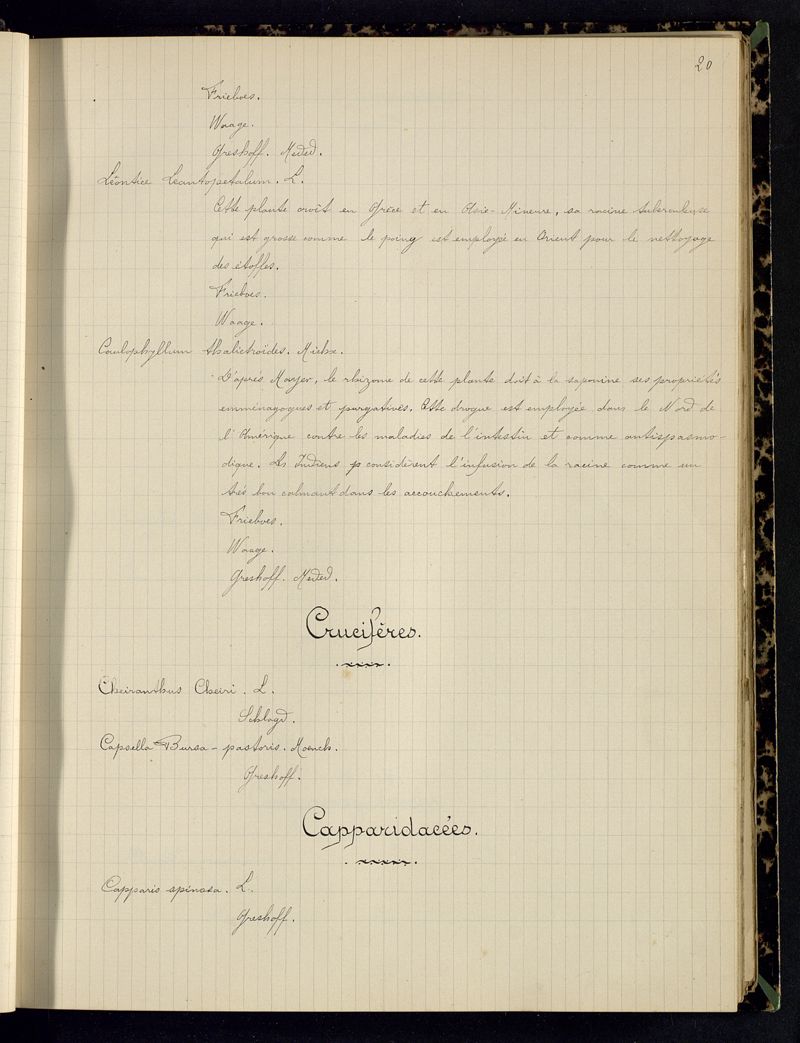 20
Frieboes.
Waage.
Greshoff. Meded.
Léontice Leontopetalum. L.
Cette plante croit en Grèce et en Asie-Mineure, sa racine tuberculeuse
qui est grosse comme le poing est employée en Orient pour le nettoyage
des étoffes.
Frieboes.
Waage.
Caulophyllum thalictroides. Michx.
D'après Mayer, le rhizome de cette plante doit à la saponine ses propriétés
emménagogues et purgatives. Cette drogue est employée dans le Nord de
l'Amérique contre les maladies de l'intestin et comme antispasmo-
dique. Les Indiens considèrent l'infusion de la racine comme un
très bon calmant dans les accouchements.
Frieboes.
Waage.
Greshoff. Meded.
Crucifères.
Cheiranthus Cheiri. L.
Schlagd.
Capsella Bursa-pastoris. Moench.
Greshoff.
Capparidacées.
Capparis spinosa. L.
Greshoff.